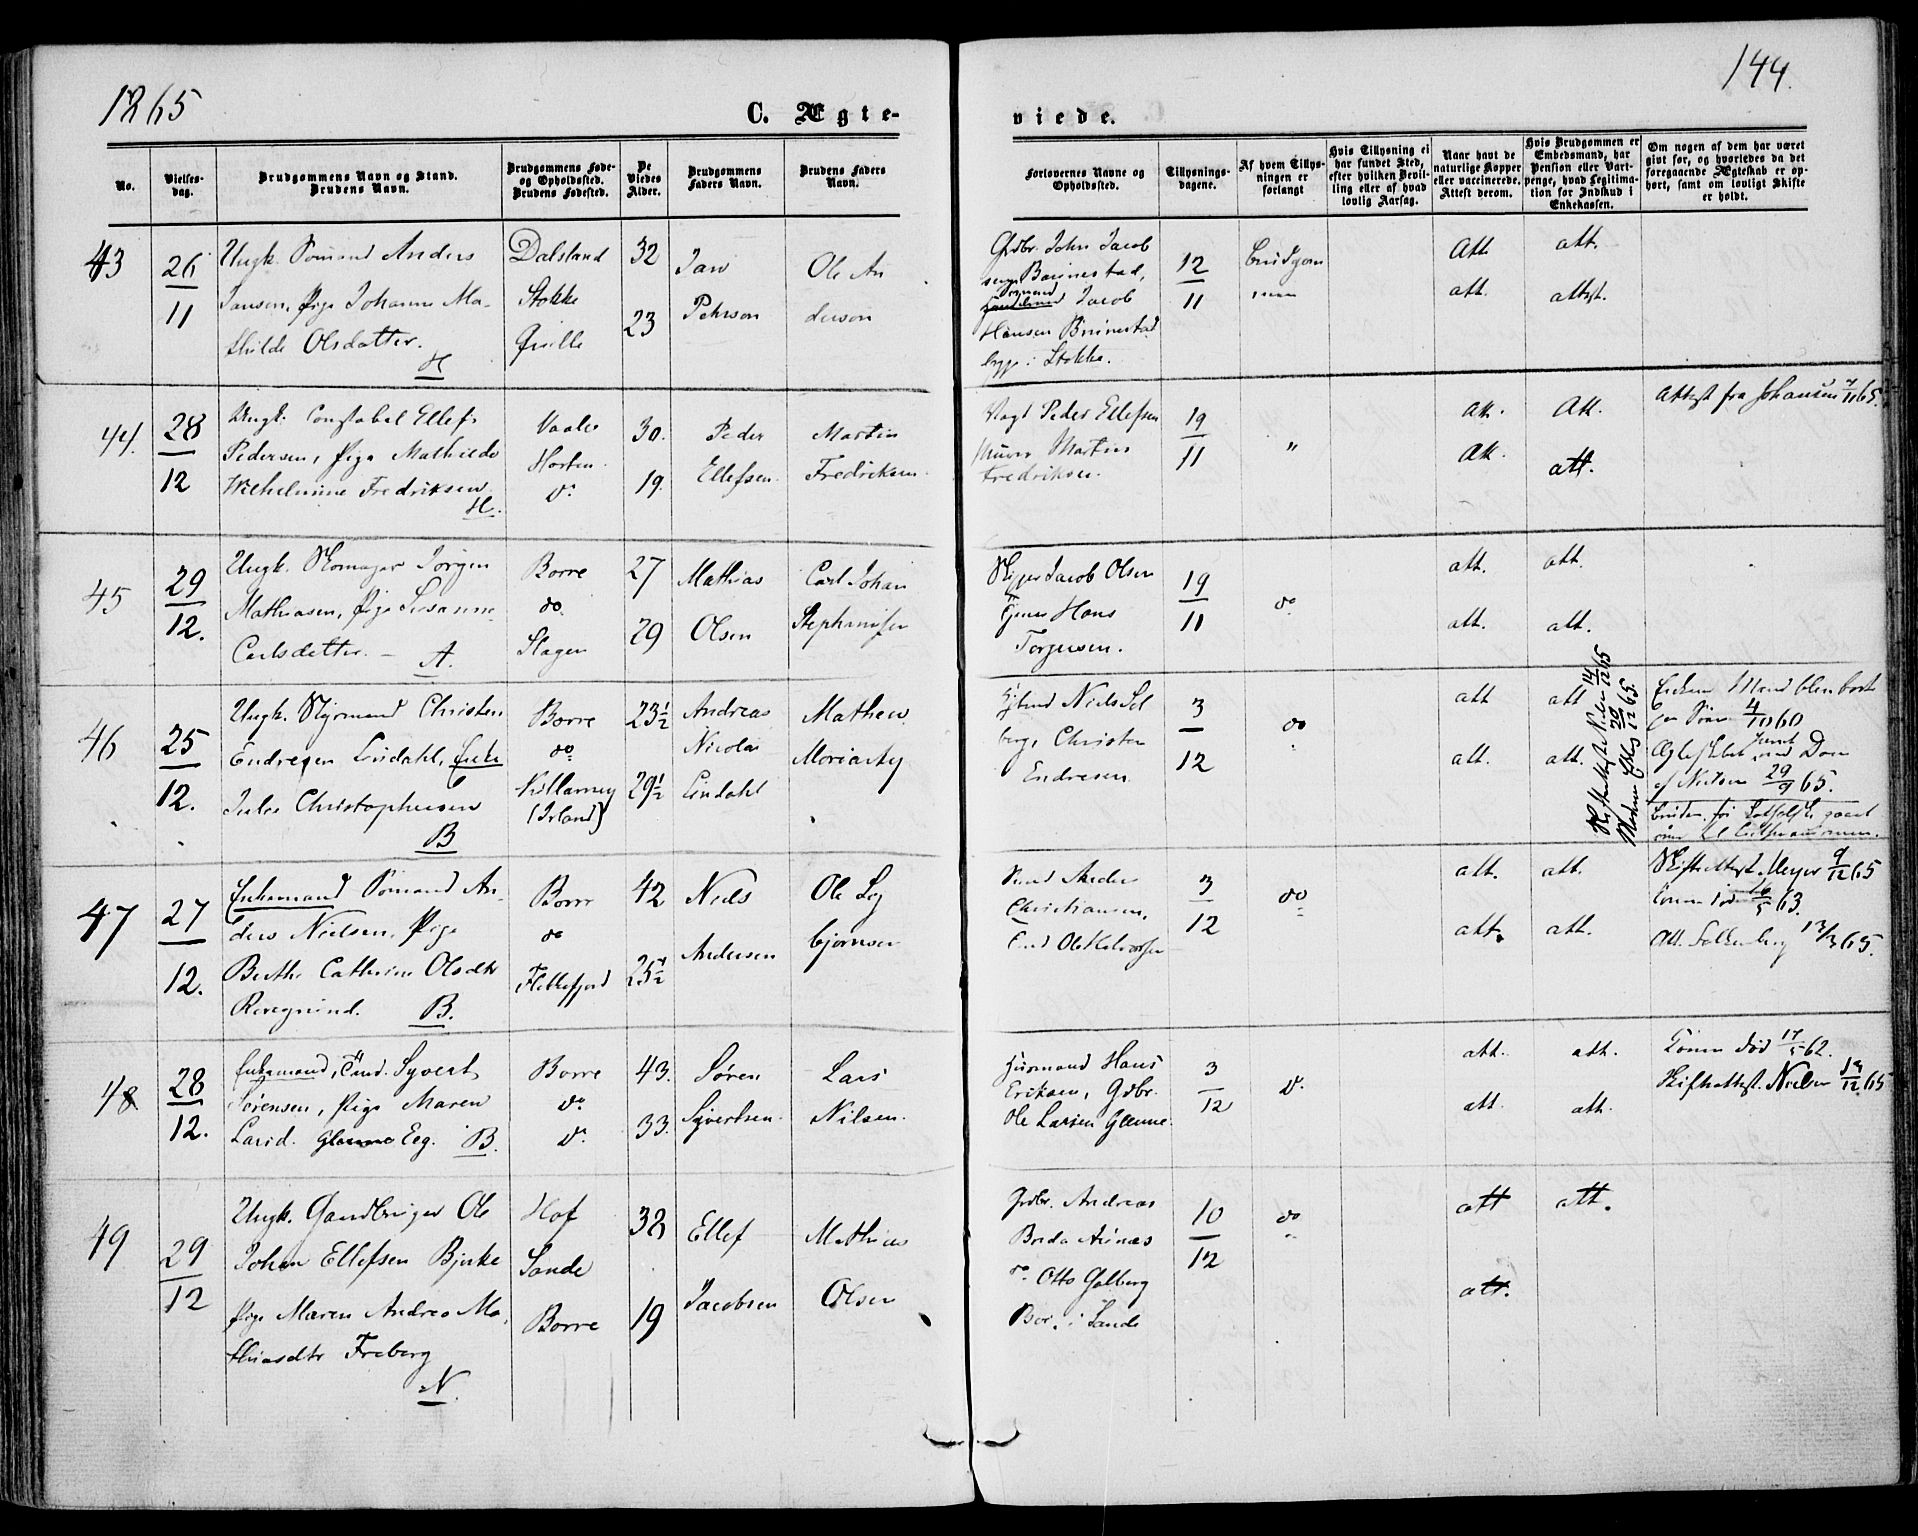 1865
144.
C. Ægte-
viede.
No.
Vielses-
dag.
Brudgommens Navn og Stand.
Brudens Navn.
Brudgommens Føde-
og Opholdssted.
Brudens Fødested.
De
Viedes
Alder.
Brudgommens
Faders Navn.
Brudens Faders
Navn.
Forlovernes Navne og
Opholdssted.
Tillysnings-
dagene.
Af hvem Tillys-
ningen er
forlangt
Hvis Tillysning ei
har fundet Sted,
efter hvilken Bevil-
ling eller af hvad
lovlig Aarsag.
Naar havt de
naturlige Kopper
eller vaccinerede.
Attest derom.
Hvis Brudgommen er
Embedsmand, har
Pension eller Vart-
penge, hvad Legitima-
tion for Indskud i
Enkekassen.
Om nogen af dem har været
gift før, og hvorledes da det
foregaaende Ægteskab er op-
hørt, samt om lovligt Skifte
er holdt.
43
26
11
Ungk. Sømand Anders
Jansen, Pige Johanne Ma-
thilde Olsdatter.
H
Dalsland
Stokke
Qville
32
23
Jan
Pehrson
Ole An
derson
Grdbr. John Jacob
Jacob
Hansen
i Stokke.
12
11
Brudgom
men
Att
att.
att.
attest.
44.
28
12
Ungk. Constabel Ellef
Pedersen, Pige Mathilde
Wilhelmine Fredriksen
H.
Vaale
Horten
do
30.
19.
Peder
Ellefsen
Martin
Fredriksen
Vagt Peder Ellefsen
Murer Martin
Fredriksen.
19
11
"
Att.
Att.
Att.
att.
Attest fra Johansen 65.
45
29
12.
Ungk. Skomager Jörgen
Mathiasen, Pige Susanne
Carlsdatter. - A.
Borre
do
Slagen
27
29
Mathias
Olsen
Carl Johan
Skipper Jacob Olsen
Hans
Torgersen.
19
11
do
att.
att.
att.
att.
46
25
12.
Ungk. Styrmand Christen
Endresen Lindahl, Enke
Julie Christophersen
B
Borre
do
Killarney
(Irland)
23½
29½
Andreas
Nicolai
Lindahl
Mathew
Moriarty
Niels Sol
berg, Christen
Endresen
3
12
do
att
att.
att
att.
14/12 65
20/12 65.
Enkens Mand blev bort
4/10 60
Dom
af Nielsen 29/9 65.
47
27
12.
Enkemand Sømand An-
ders Nielsen, Pige
Berthe Cathrine Olsdtr
B.
Borre
do
Flekkefjord
42
25½
Niels
Andersen
Ole
bjørnsen
Christiansen,
Ole Halvorsen
3
12
do
att.
att.
att.
att.
Skifteattest. Meyer 9/12 65
16/5 63.
Att. 13/3 65.
48
28
12.
Enkemand, Tømd. Syvert
Sørensen, Pige Maren
Larsd. Eeg. B.
Borre
do
do
43.
33.
Søren
Syvertsen
Lars
Nilsen.
Husmand Hans
Eriksen, Gdbr.
Ole Larsen Glenne.
3
12
do
att.
att.
att.
att.
Konen død 17/5 62.
Skifteattest. Nielsen 13/12 65
49
29
12
Ungk. Gaardbruger Ole
Johan Ellefsen Bjerke
Pige Maren Andrea Ma-
thiasdtr Freberg
N.
Hof
Sande
Borre
38
19
Ellef
Jacobsen
Mathias
Olsen
Grdbr. Andreas
do Otto Galberg
i Sande
10
12
do
att
att.
att.